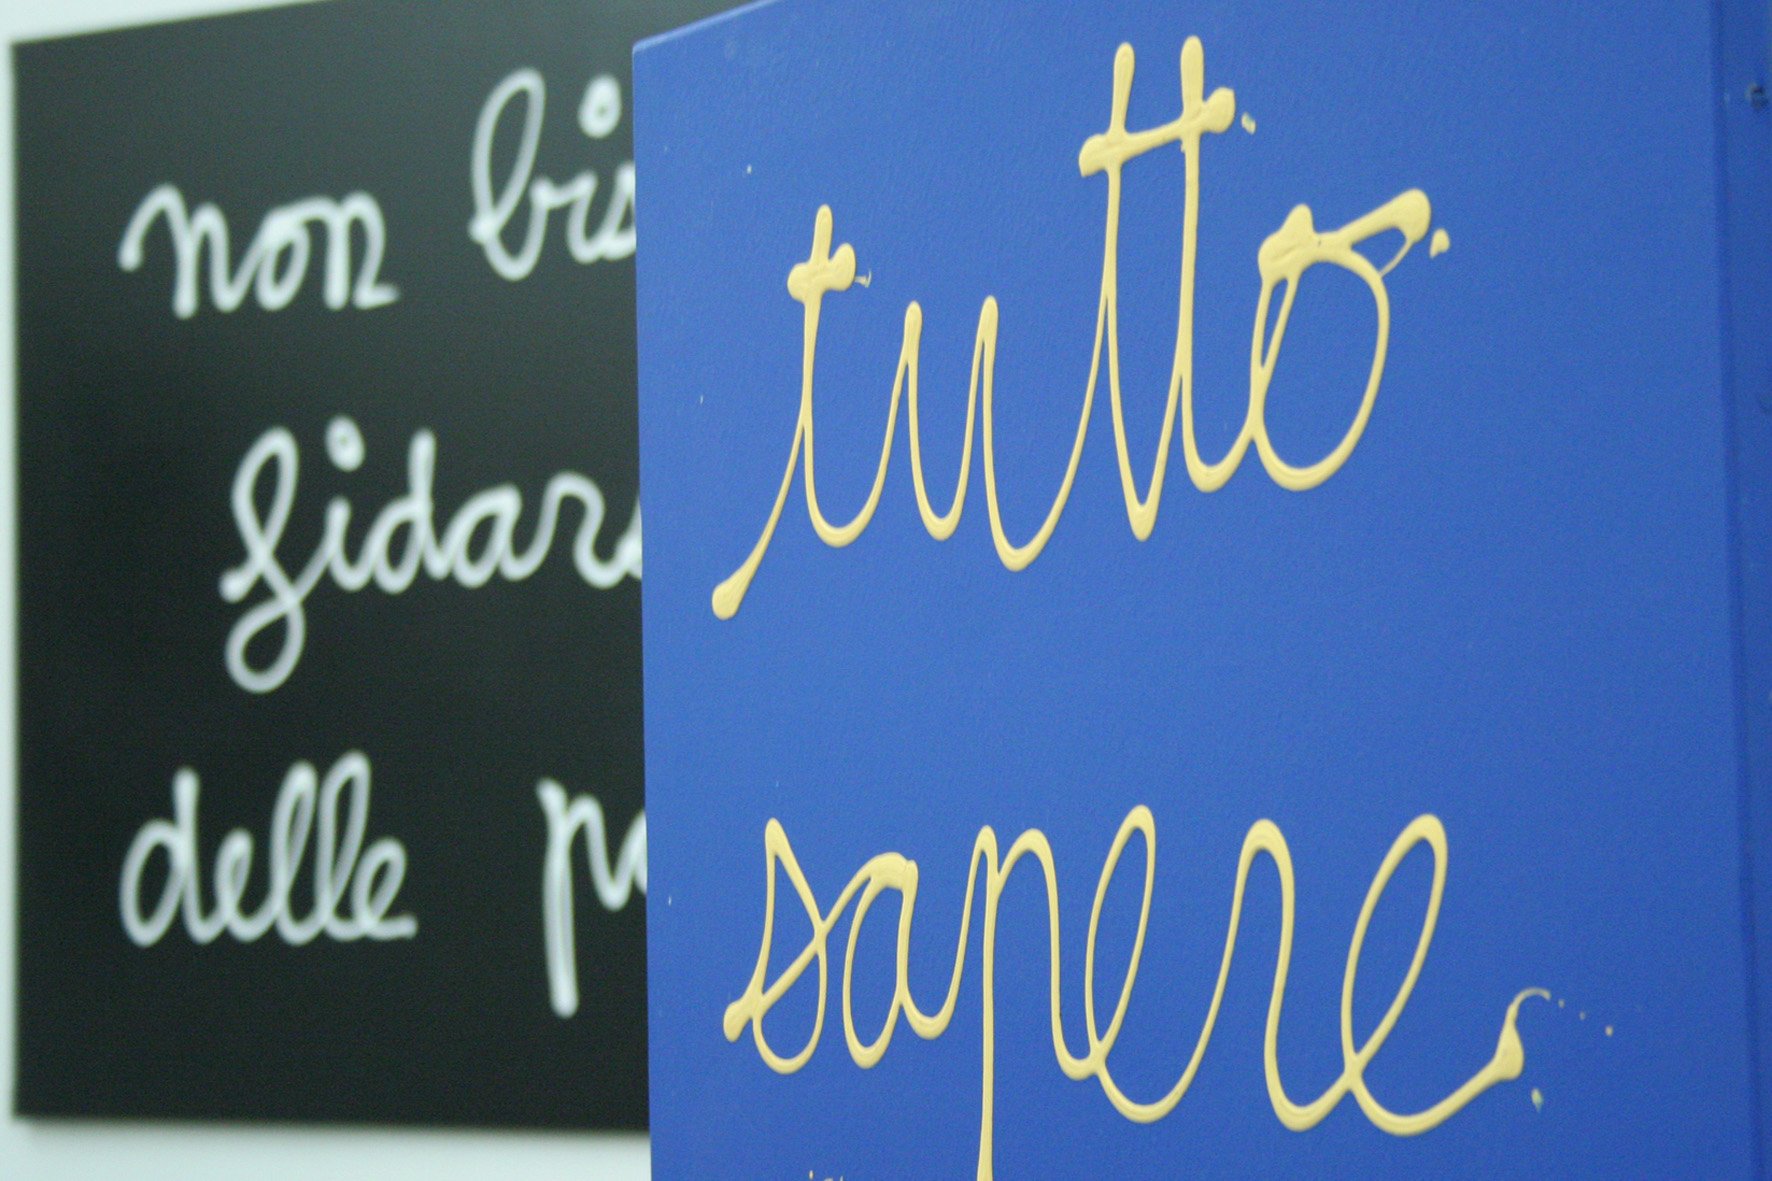 non bis
fidar
delle
tutto
sapere